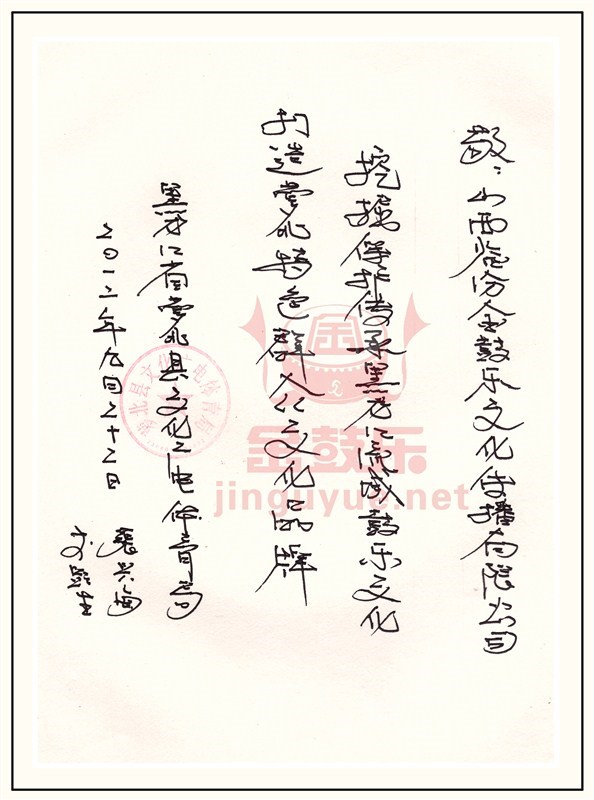 敬：山西临汾金鼓乐文化传播有限公司
挖掘保护传承黑龙江流域鼓乐文化
打造萝北特色群众文化品牌
黑龙江省萝北县文化广电体育局
二〇一二年九月二十二日
萝北县文化广电体育局
金
金鼓乐
jinguyue.net